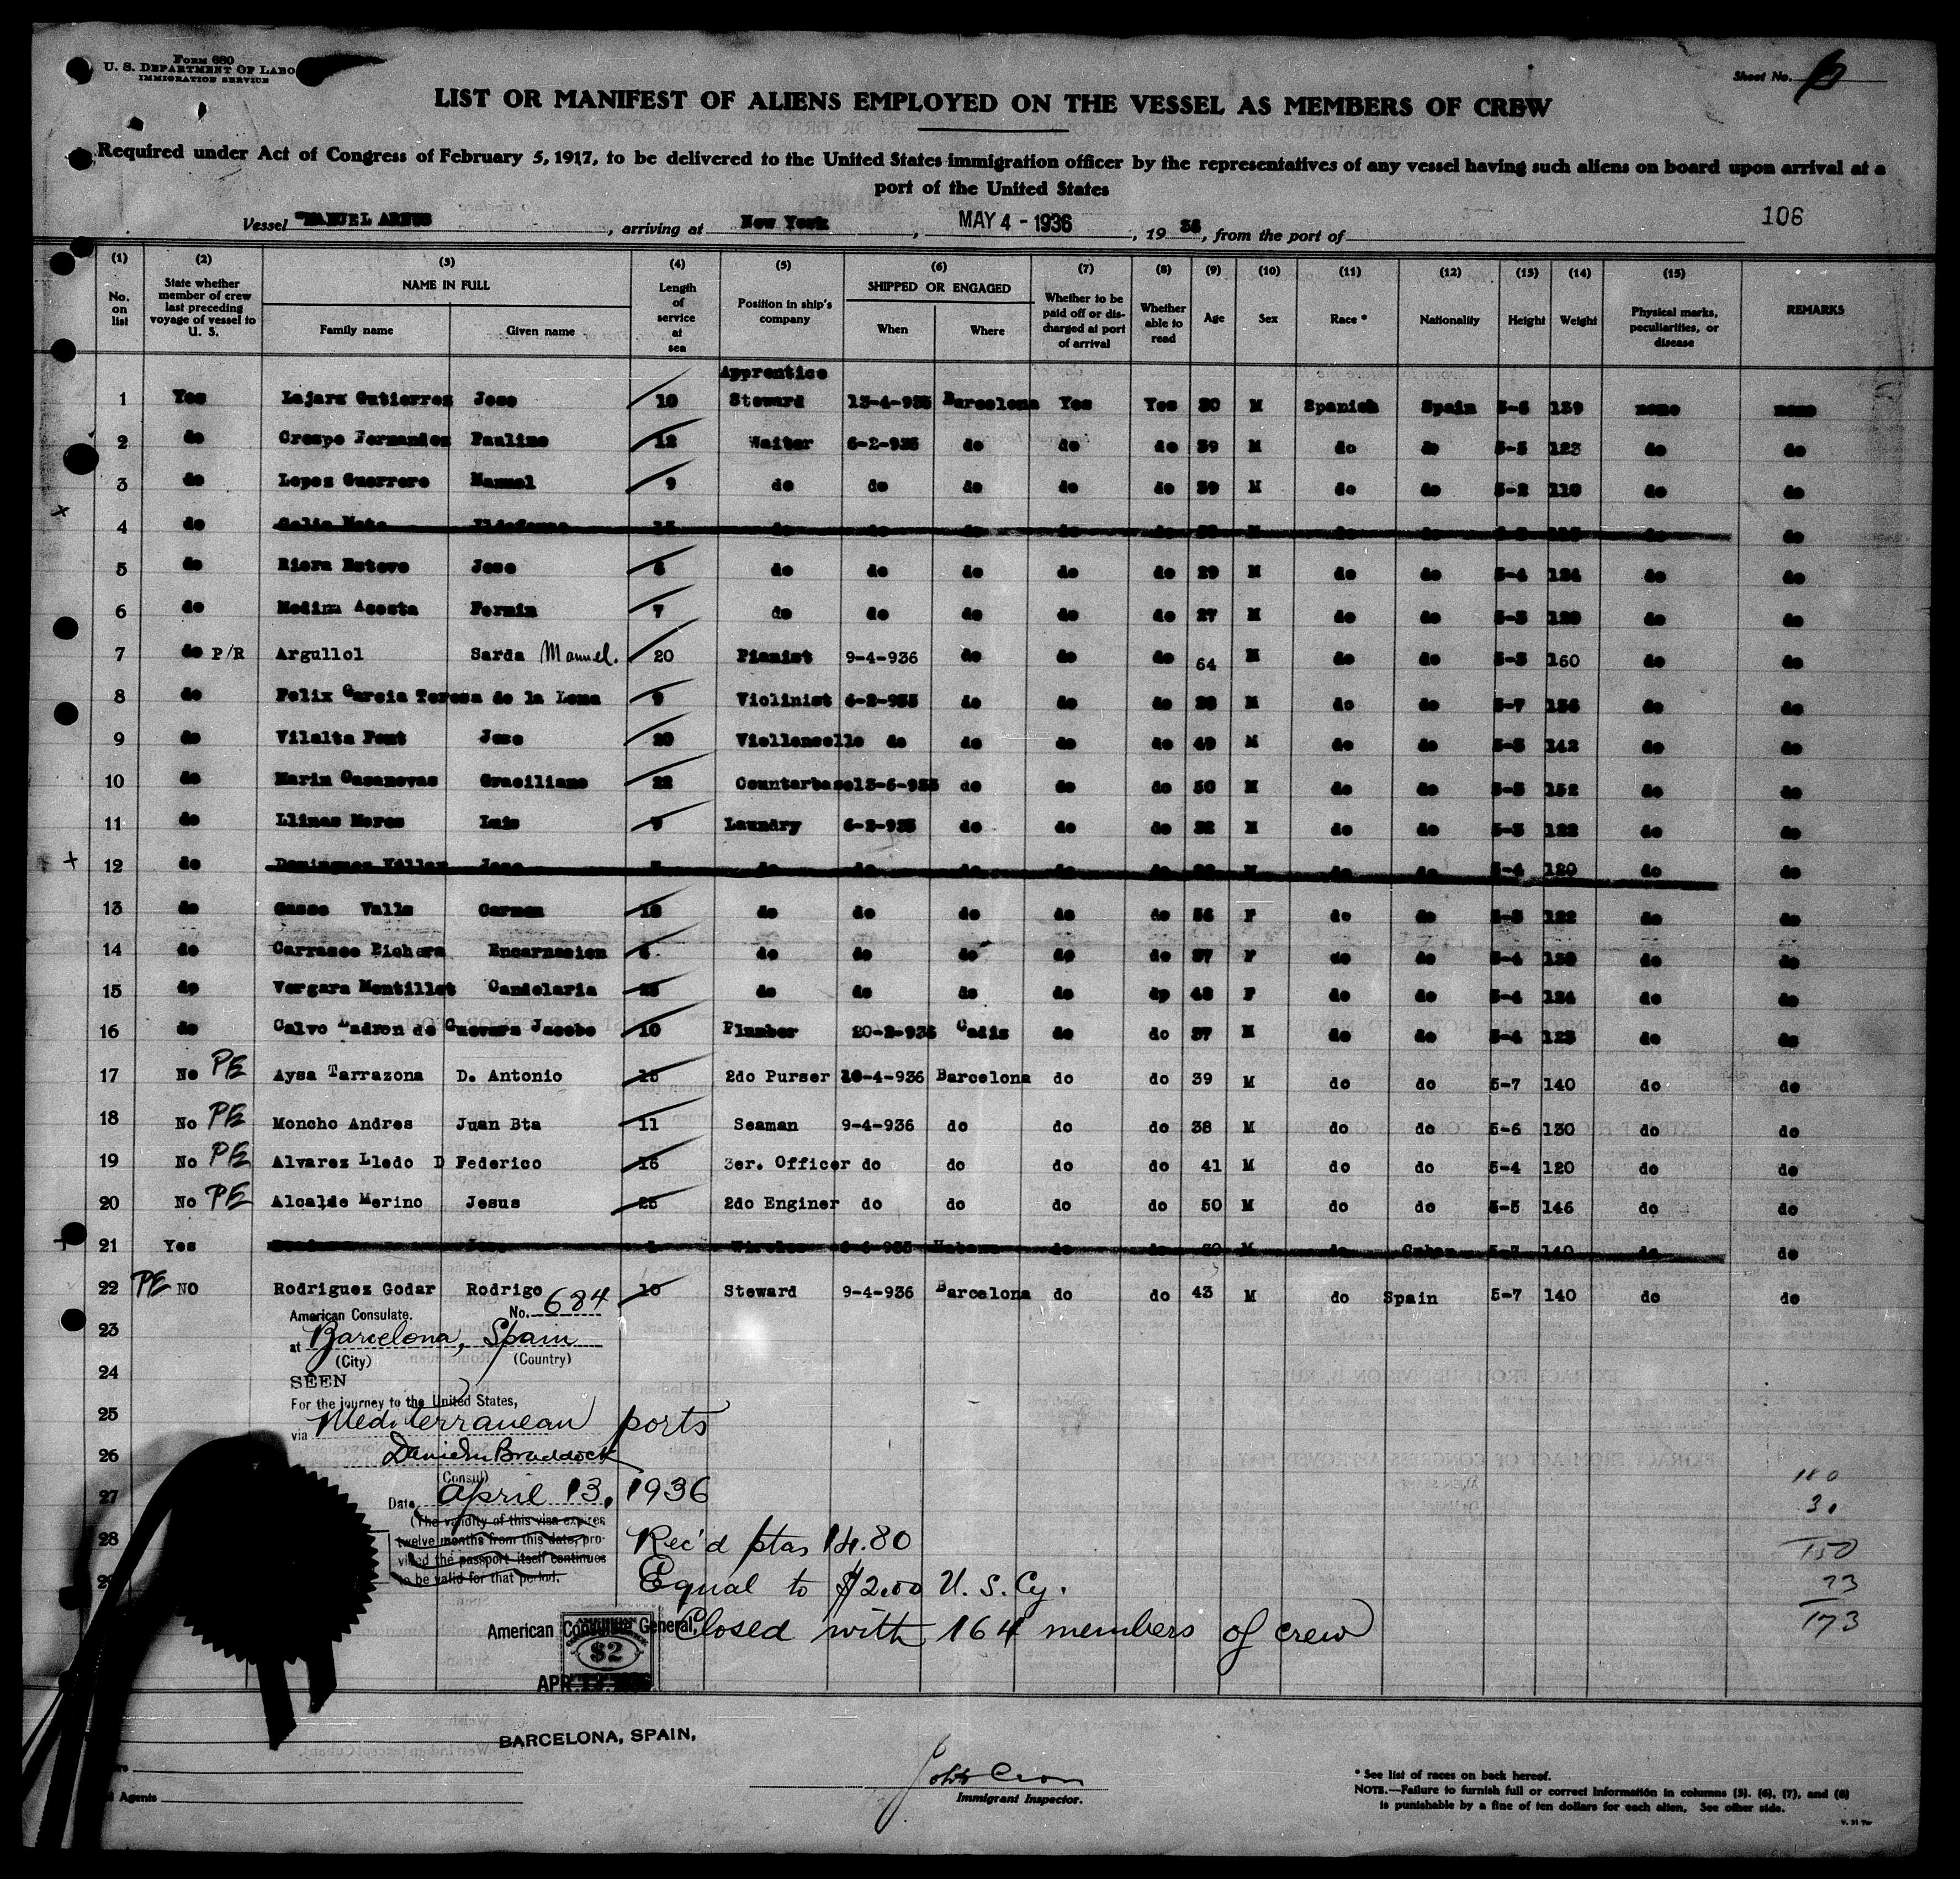 Form 680
U. S. Department Of Labo
IMMIGRATION SERVICE
Sheet No.
LIST OR MANIFEST OF ALIENS EMPLOYED ON THE VESSEL AS MEMBERS OF CREW
Required under Act of Congress of February 5, 1917, to be delivered to the United States immigration officer by the representatives of any vessel having such aliens on board upon arrival at a
port of the United States
Vessel MANUEL ARNUS, arriving at New York, MAY 4 - 1936, 19 36, from the port of
106
(1) (2) (3) (4) (5) (6) (7) (8) (9) (10) (11) (12) (13) (14) (15)
No. on list
State whether member of crew last preceding voyage of vessel to U. S.
NAME IN FULL
Family name Given name
Length of service at sea
Position in ship's company
SHIPPED OR ENGAGED
When Where
Whether to be paid off or discharged at port of arrival
Whether able to read
Age Sex Race * Nationality Height Weight
Physical marks, peculiarities, or disease
REMARKS
Apprentice
1 Yes Lajara Gutierrez Jose 10 Steward 13-4-935 Barcelona Yes Yes 30 M Spanish Spain 5-6 139 none none
2 do Crespo Fernandez Paulino 12 Waiter 6-2-935 do do do 39 M do do 5-5 123 do do
3 do Lopez Guerrero Manuel 9 do do do do do 39 M do do 5-2 110 do do
4 do do
5 do Riera Esteve Jose do do do do do 29 M do do 5-4 124 do do
6 do Medina Acosta Fermin 7 do do do do do 27 M do do 5-5 120 do do
7 do P/R Argullol Sarda Manuel. 20 Pianist 9-4-936 do do do 64 M do do 5-5 160 do do
8 do Felix Garcia Teresa de la Loma 9 Violinist 6-2-935 do do do 38 M do do 5-7 156 do do
9 do Vilalta Font Jose 20 Viollencello do do do do 49 M do do 5-5 142 do do
10 do Marin Casanovas Graciliano 22 Counterbase 13-6-935 do do do 50 M do do 5-5 152 do do
11 do Llinas Mores Luis 9 Laundry 6-2-935 do do do 32 M do do 5-5 122 do do
12 do Jose 5-4 120 do do
13 do Gasso Valls Carmen 18 do do do do do 56 F do do 5-5 122 do do
14 do Carrasco Encarnacion do do do do do 37 F do do 5-4 130 do do
15 do Vergara Montillet Candelaria do do do do dp 48 F do do 5-4 124 do do
16 do Calvo Ladron de Guevara Jacobo 10 Plumber 20-2-935 Cadiz do do 37 M do do 5-4 123 do do
17 No PE Aysa Tarrazona D. Antonio 15 2do Purser 10-4-936 Barcelona do do 39 M do do 5-7 140 do do
18 No PE Moncho Andres Juan Bta 11 Seaman 9-4-936 do do do 38 M do do 5-6 130 do do
19 No PE Alvarez Lledo D Federico 16 3er. Officer do do do do 41 M do do 5-4 120 do do
20 No PE Alcalde Merino Jesus 25 2do Enginer do do do do 50 M do do 5-5 146 do do
21 Yes Jose Wireles 6-6-935 Habana do do 30 M do Cuban 5-7 140 do do
22 PE NO Rodriguez Godar Rodrigo 10 Steward 9-4-936 Barcelona do do 43 M do Spain 5-7 140 do do
American Consulate. No. 684
23
at Barcelona, Spain
(City) (Country)
24
SEEN
For the journey to the United States,
25
via Mediterranean ports
26
Daniel M Braddock
(Consul)
27
Date April 13, 1936
(The validity of this visa expires
28
twelve months from this date, pro-
vided the passport itself continues
to be valid for that period.
29
Rec'd ptas 14.80
Equal to $2.00 U. S. Cy.
Closed with 164 members of crew
180
30
150
23
173
American Consulate General,
$2
APR 13 1936
BARCELONA, SPAIN,
Agents
Immigrant Inspector.
* See list of races on back hereof.
NOTE.—Failure to furnish full or correct information in columns (3), (6), (7), and (8)
is punishable by a fine of ten dollars for each alien. See other side.